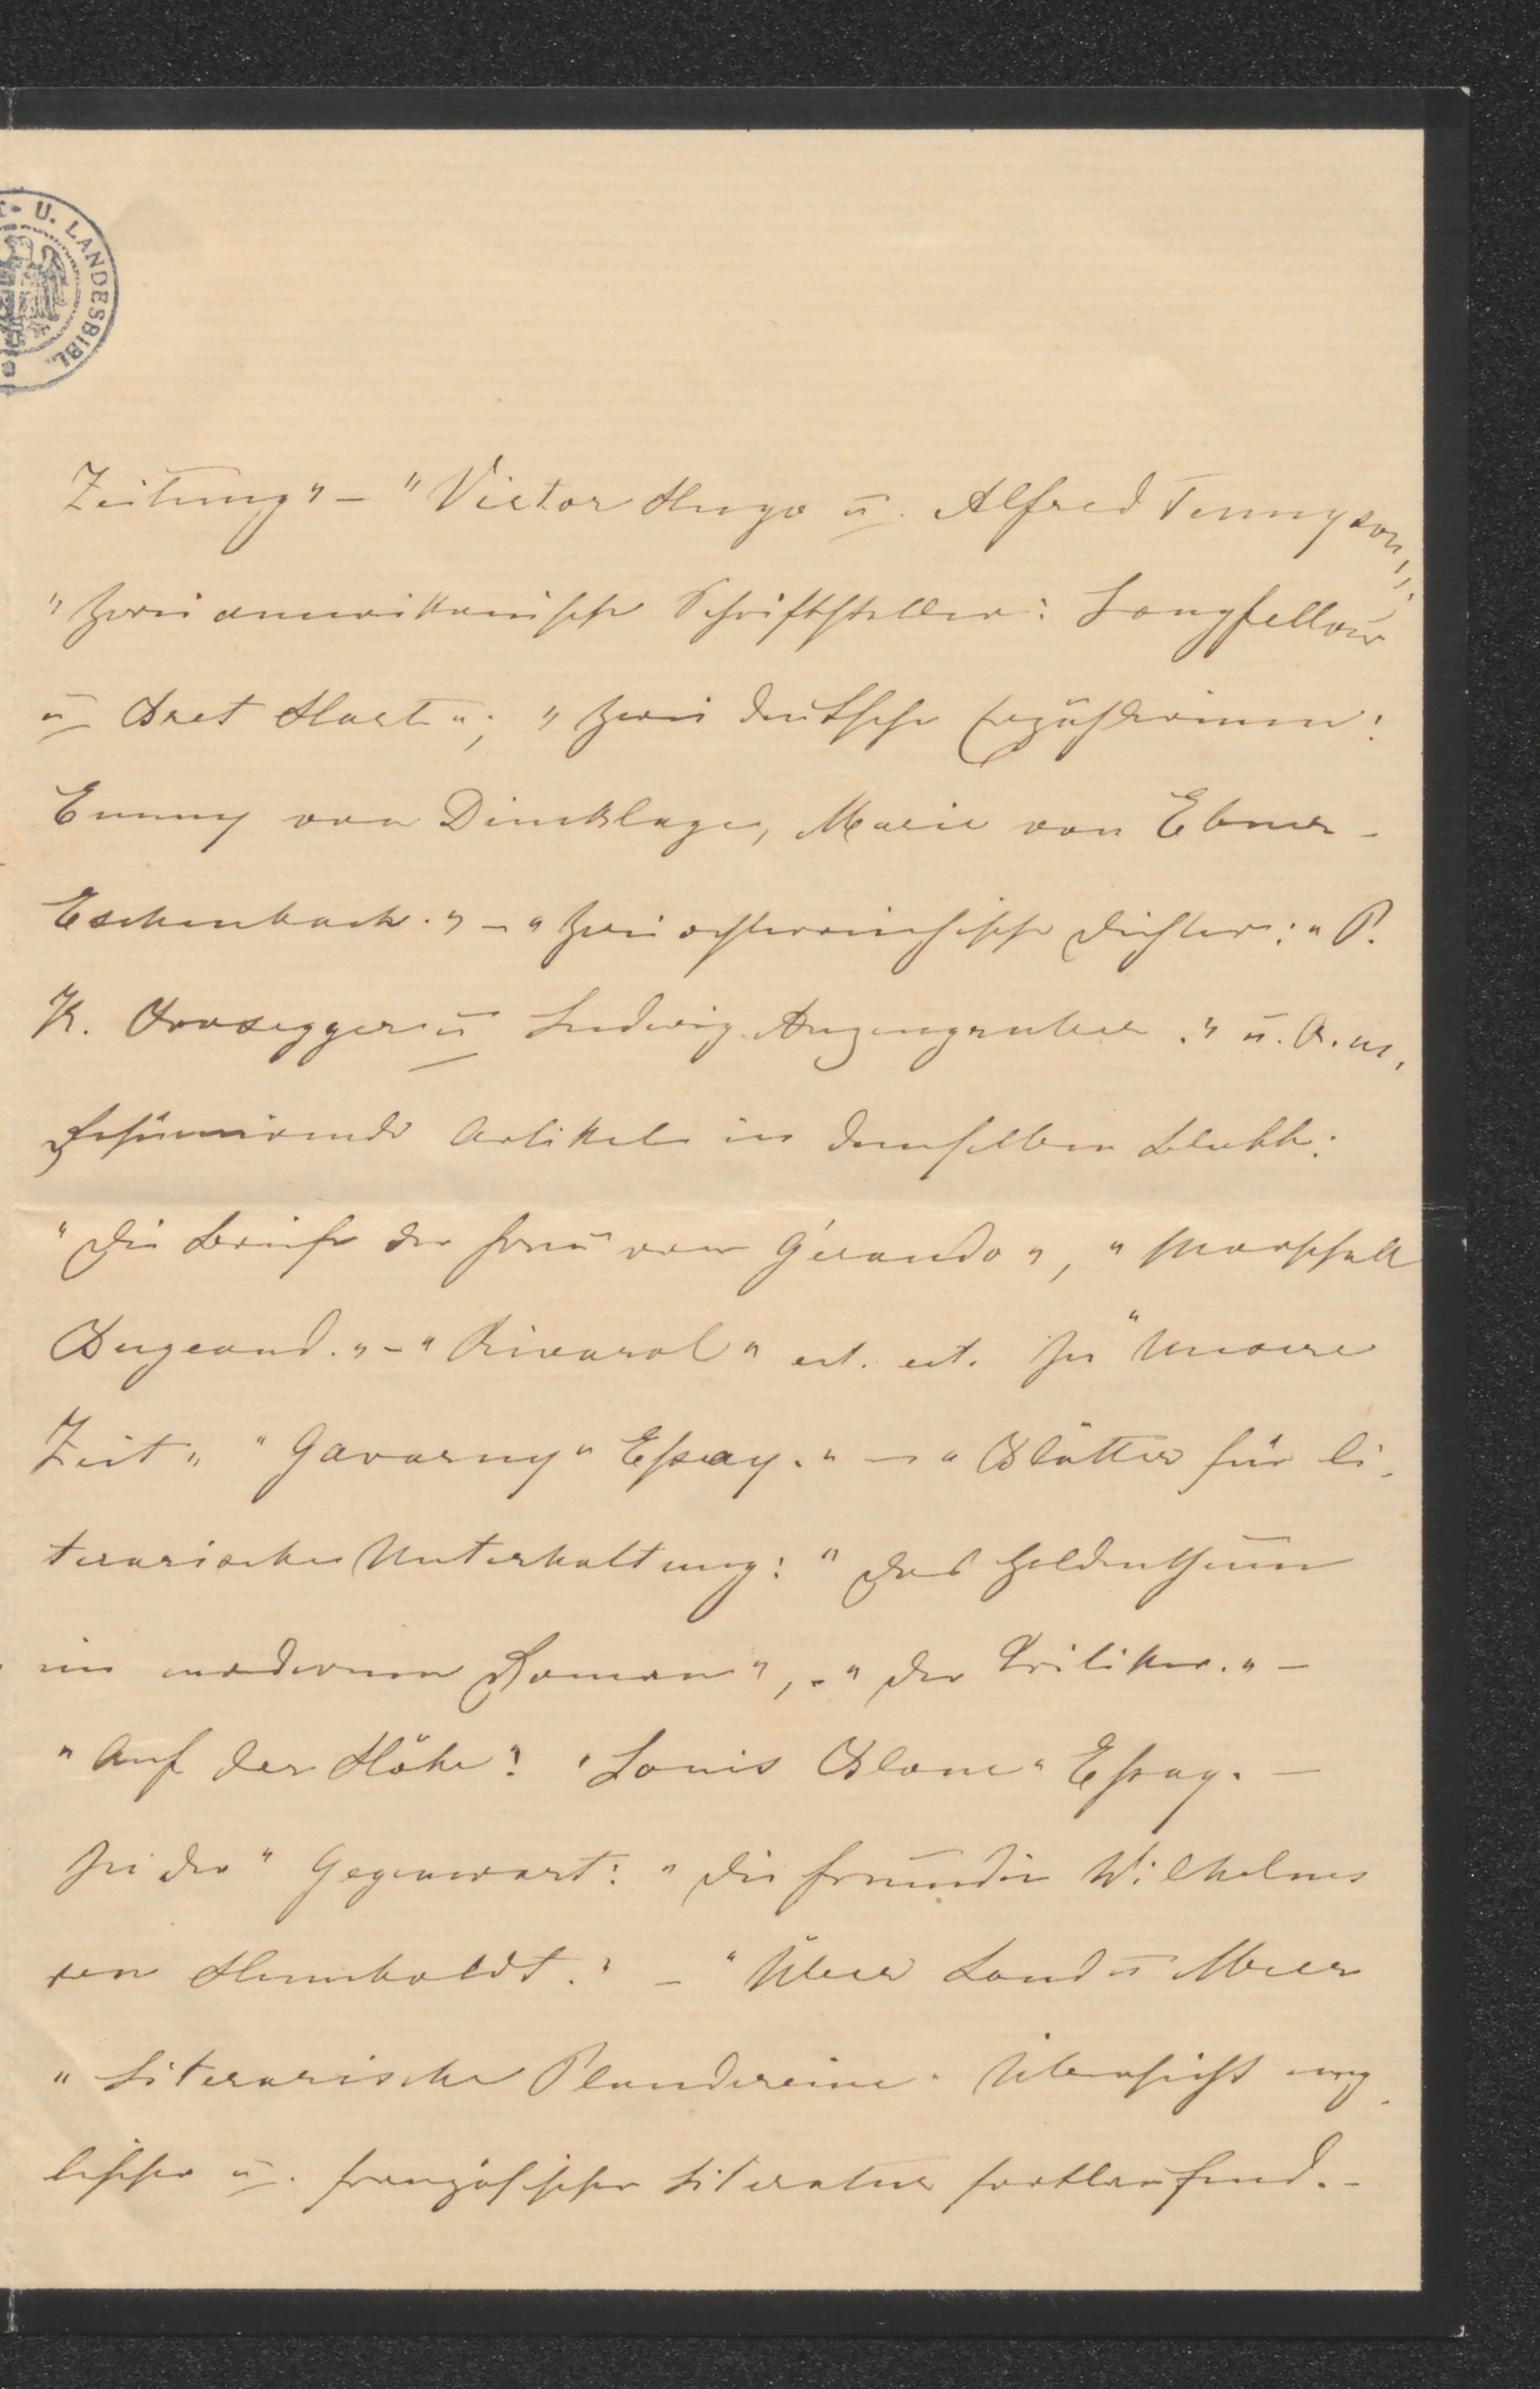 U. LANDESBIBL.
Zeitung" – "Victor Hugo u. Alfred Tennyson";
"Zwei amerikanische Schriftsteller: Longfellow
u Bret Hart"; "Zwei deutsche Erzählerinnen:
Emmy von Dincklage, Marie von Ebner-
Eschenbach." – "Zwei österreichische Dichter: "P.
K. Rosegger u Ludwig Anzengruber." u. A. m.
Resümirende Artikel in demselben Blatte:
"Die Briefe der Frau von Gérando", "Marschall
Bugeaud." – "Rivarol" ect. ect. In "Unsere
Zeit" "Gavarny" Essay." – "Blätter für li-
terarische Unterhaltung: "Das Heldenthum
im modernen Roman", – "Der Kritiker." –
"Auf der Höhe": "Louis Blanc" Essay. –
In der "Gegenwart: "Die Freundin Wilhelms
von Humboldt." – "Über Land u Meer
"Literarische Plaudereien" Übersicht eng-
lischer u. französischer Literatur fortlaufend. –